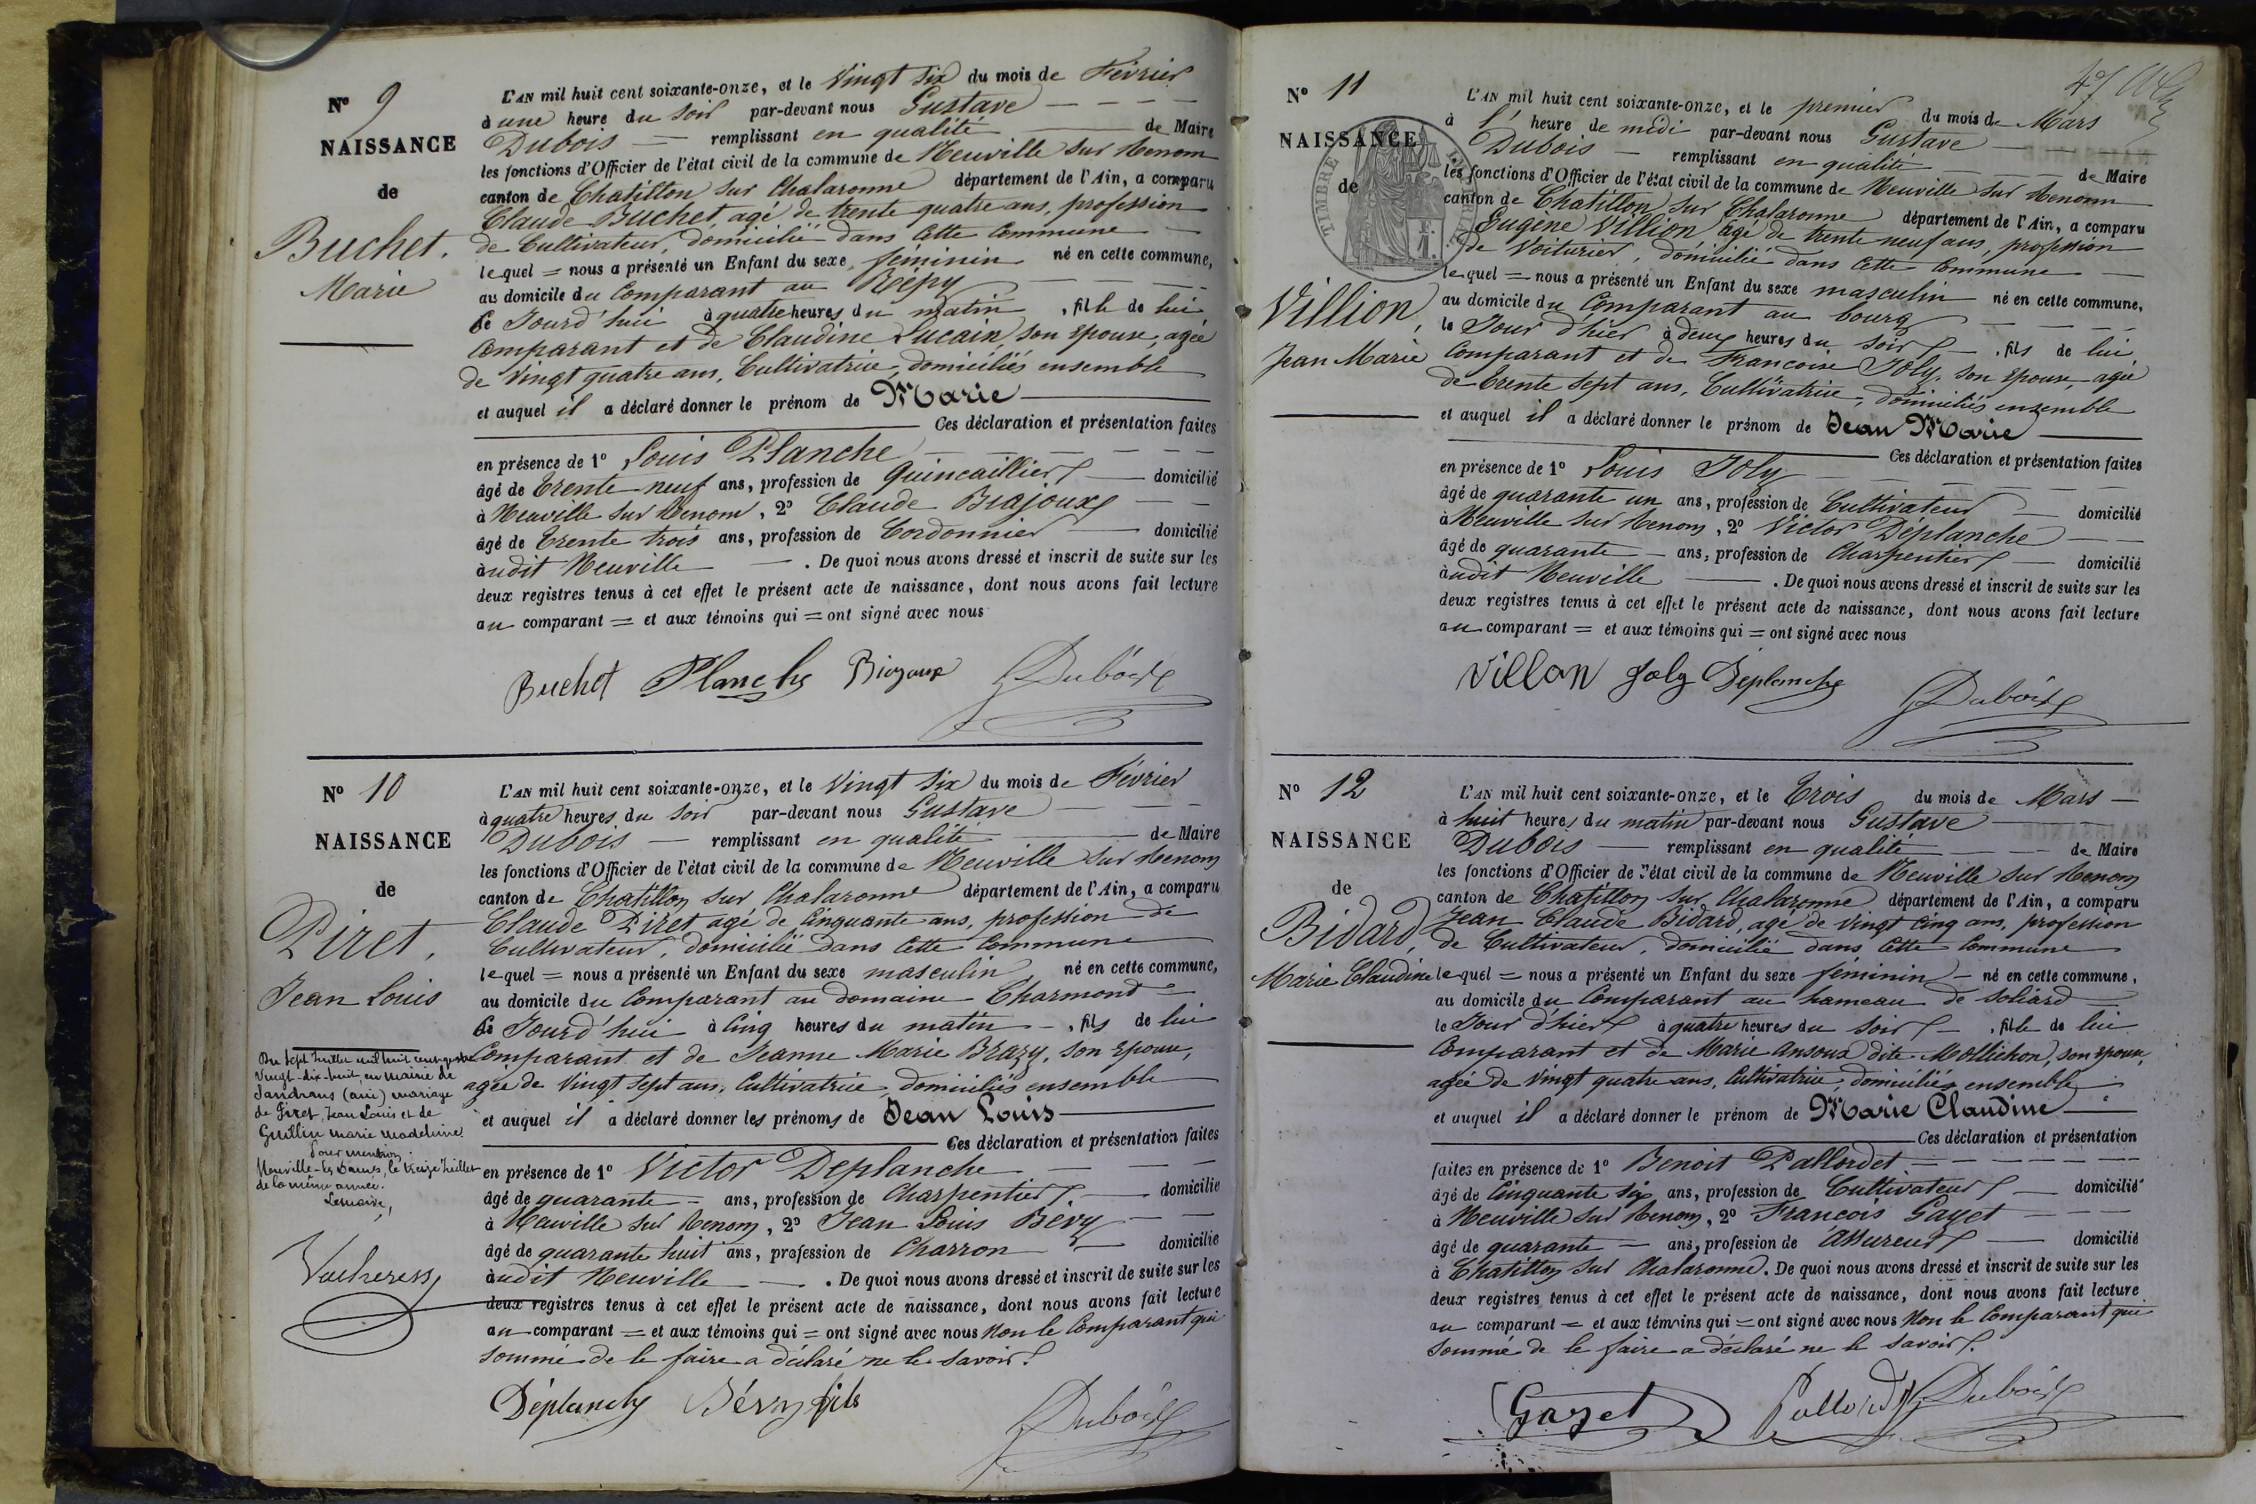 Nº 9
NAISSANCE
de
Buchet.
Marie
L'AN mil huit cent soixante-onze, et le Vingt Six du mois de Février
à une heure du Soir par-devant nous Gustave
Dubois = remplissant en qualité de Maire
les fonctions d'Officier de l'état civil de la commune de Neuville sur Renom
canton de Chatillon sur Chalaronne département de l'Ain, a comparu
Claude Buchet, agé de trente quatre ans, profession
de Cultivateur, domicilié dans Cette Commune
lequel = nous a présenté un Enfant du sexe féminin né en cette commune,
au domicile du Comparant au Répy
Ce Jourd'hui à quatre heures du matin, fille de lui
Comparant et de Claudine Lucain, son épouse, agée
de Vingt quatre ans, Cultivatrice, domiciliés ensemble
et auquel il a déclaré donner le prénom de Marie
Ces déclaration et présentation faites
en présence de 1º Louis Planche
âgé de trente-neuf ans, profession de Quincaillier domicilié
à Neuville sur Renom, 2º Claude Biajoux
âgé de trente trois ans, profession de Cordonnier domicilié
audit Neuville. De quoi nous avons dressé et inscrit de suite sur les
deux registres tenus à cet effet le présent acte de naissance, dont nous avons fait lecture
au comparant = et aux témoins qui = ont signé avec nous
Buchet Planche Biajoux Dubois
Nº 10
NAISSANCE
de
Piret.
Jean Louis
Du sept Juillet mil huit cent quatre
Vingt-dix-huit, en mairie de
Sandrans (ain) mariage
de Piret, Jean Louis et de
Guillin marie madeleine
Pour mention.
Neuville-les Dames, le treize Juillet
de la même année.
Le maire,
L'AN mil huit cent soixante-onze, et le Vingt Six du mois de Février
à quatre heures du Soir par-devant nous Gustave
Dubois — remplissant en qualité de Maire
les fonctions d'Officier de l'état civil de la commune de Neuville sur Renom
canton de Chatillon sur Chalaronne département de l'Ain, a comparu
Claude Piret agé de Cinquante ans, profession de
Cultivateur, domicilié dans Cette Commune
lequel = nous a présenté un Enfant du sexe masculin né en cette commune,
au domicile du Comparant au domaine Charmond =
Ce Jourd'hui à Cinq heures du matin, fils de lui
Comparant et de Jeanne Marie Brazy, son épouse,
agée de Vingt sept ans, Cultivatrice, domiciliés ensemble
et auquel il a déclaré donner les prénoms de Jean Louis
Ces déclaration et présentation faites
en présence de 1º Victor Deplanche
âgé de quarante = ans, profession de Charpentier domicilié
à Neuville sur Renom, 2º Jean Louis Bévy
âgé de quarante huit ans, profession de Charron domicilié
audit Neuville. De quoi nous avons dressé et inscrit de suite sur les
deux registres tenus à cet effet le présent acte de naissance, dont nous avons fait lecture
au comparant = et aux témoins qui = ont signé avec nous Non le Comparant qui
sommé de le faire a déclaré ne le savoir.
Déplanche Bévy fils Dubois
Nº 11
NAISSANCE
de
Villion,
Jean Marie
TIMBRE
L'AN mil huit cent soixante-onze, et le premier du mois de Mars
à l' heure de midi par-devant nous Gustave
Dubois — remplissant en qualité de Maire
les fonctions d'Officier de l'état civil de la commune de Neuville sur Renom
canton de Chatillon sur Chalaronne département de l'Ain, a comparu
Eugène Villion agé de trente neuf ans, profession
de Voiturier, domicilié dans Cette Commune
lequel = nous a présenté un Enfant du sexe masculin né en cette commune,
au domicile du Comparant au bourg
le Jour d'hier à deux heures du soir, fils de lui
Comparant et de Francoise Joly, son épouse, agée
de trente sept ans, Cultivatrice, domiciliés ensemble
et auquel il a déclaré donner le prénom de Jean Marie
Ces déclaration et présentation faites
en présence de 1º Louis Joly
âgé de quarante un ans, profession de Cultivateur domicilié
à Neuville sur Renom, 2º Victor Déplanche
âgé de quarante — ans, profession de Charpentier domicilié
audit Neuville. De quoi nous avons dressé et inscrit de suite sur les
deux registres tenus à cet effet le présent acte de naissance, dont nous avons fait lecture
au comparant = et aux témoins qui = ont signé avec nous
Villon Joly Déplanche Dubois
Nº 12
NAISSANCE
de
Bidard,
Marie Claudine
L'AN mil huit cent soixante-onze, et le trois du mois de Mars
à huit heures du matin par-devant nous Gustave
Dubois — remplissant en qualité de Maire
les fonctions d'Officier de l'état civil de la commune de Neuville sur Renom
canton de Chatillon sur Chalaronne département de l'Ain, a comparu
Jean Claude Bidard, agé de vingt Cinq ans, profession
de Cultivateur, domicilié dans Cette Commune
lequel = nous a présenté un Enfant du sexe féminin — né en cette commune,
au domicile du Comparant au hameau de Soliard
le Jour d'hier à quatre heures du soir, fille de lui
Comparant et de Marie Ansoux dite Mollichon, son épouse,
agée de vingt quatre ans, Cultivatrice, domiciliés ensemble
et auquel il a déclaré donner le prénom de Marie Claudine
Ces déclaration et présentation
faites en présence de 1º Benoit Pallordet
âgé de Cinquante six ans, profession de Cultivateur domicilié
à Neuville sur Renom, 2º Francois Gayet
âgé de quarante — ans, profession de Assureur domicilié
à Chatillon sur Chalaronne. De quoi nous avons dressé et inscrit de suite sur les
deux registres tenus à cet effet le présent acte de naissance, dont nous avons fait lecture
au comparant = et aux témoins qui = ont signé avec nous Non le Comparant qui
sommé de le faire a déclaré ne le savoir.
Gayet Dubois